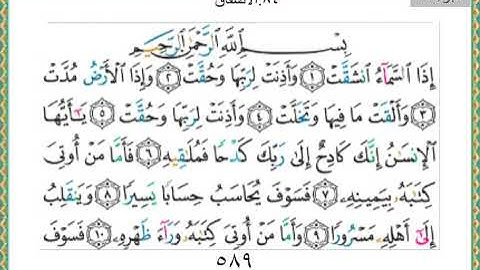 ٨٤.الانشقاق
بِسْمِ ٱللَّهِ ٱلرَّحْمَٰنِ ٱلرَّحِيمِ
إِذَا ٱلسَّمَآءُ ٱنشَقَّتْ ١ وَأَذِنَتْ لِرَبِّهَا وَحُقَّتْ ٢ وَإِذَا ٱلْأَرْضُ مُدَّتْ
٣ وَأَلْقَتْ مَا فِيهَا وَتَخَلَّتْ ٤ وَأَذِنَتْ لِرَبِّهَا وَحُقَّتْ ٥ يَٰٓأَيُّهَا
ٱلْإِنسَٰنُ إِنَّكَ كَادِحٌ إِلَىٰ رَبِّكَ كَدْحًا فَمُلَٰقِيهِ ٦ فَأَمَّا مَنْ أُوتِىَ
كِتَٰبَهُۥ بِيَمِينِهِۦ ٧ فَسَوْفَ يُحَاسَبُ حِسَابًا يَسِيرًا ٨ وَيَنقَلِبُ
إِلَىٰٓ أَهْلِهِۦ مَسْرُورًا ٩ وَأَمَّا مَنْ أُوتِىَ كِتَٰبَهُۥ وَرَآءَ ظَهْرِهِۦ ١٠ فَسَوْفَ
٥٨٩